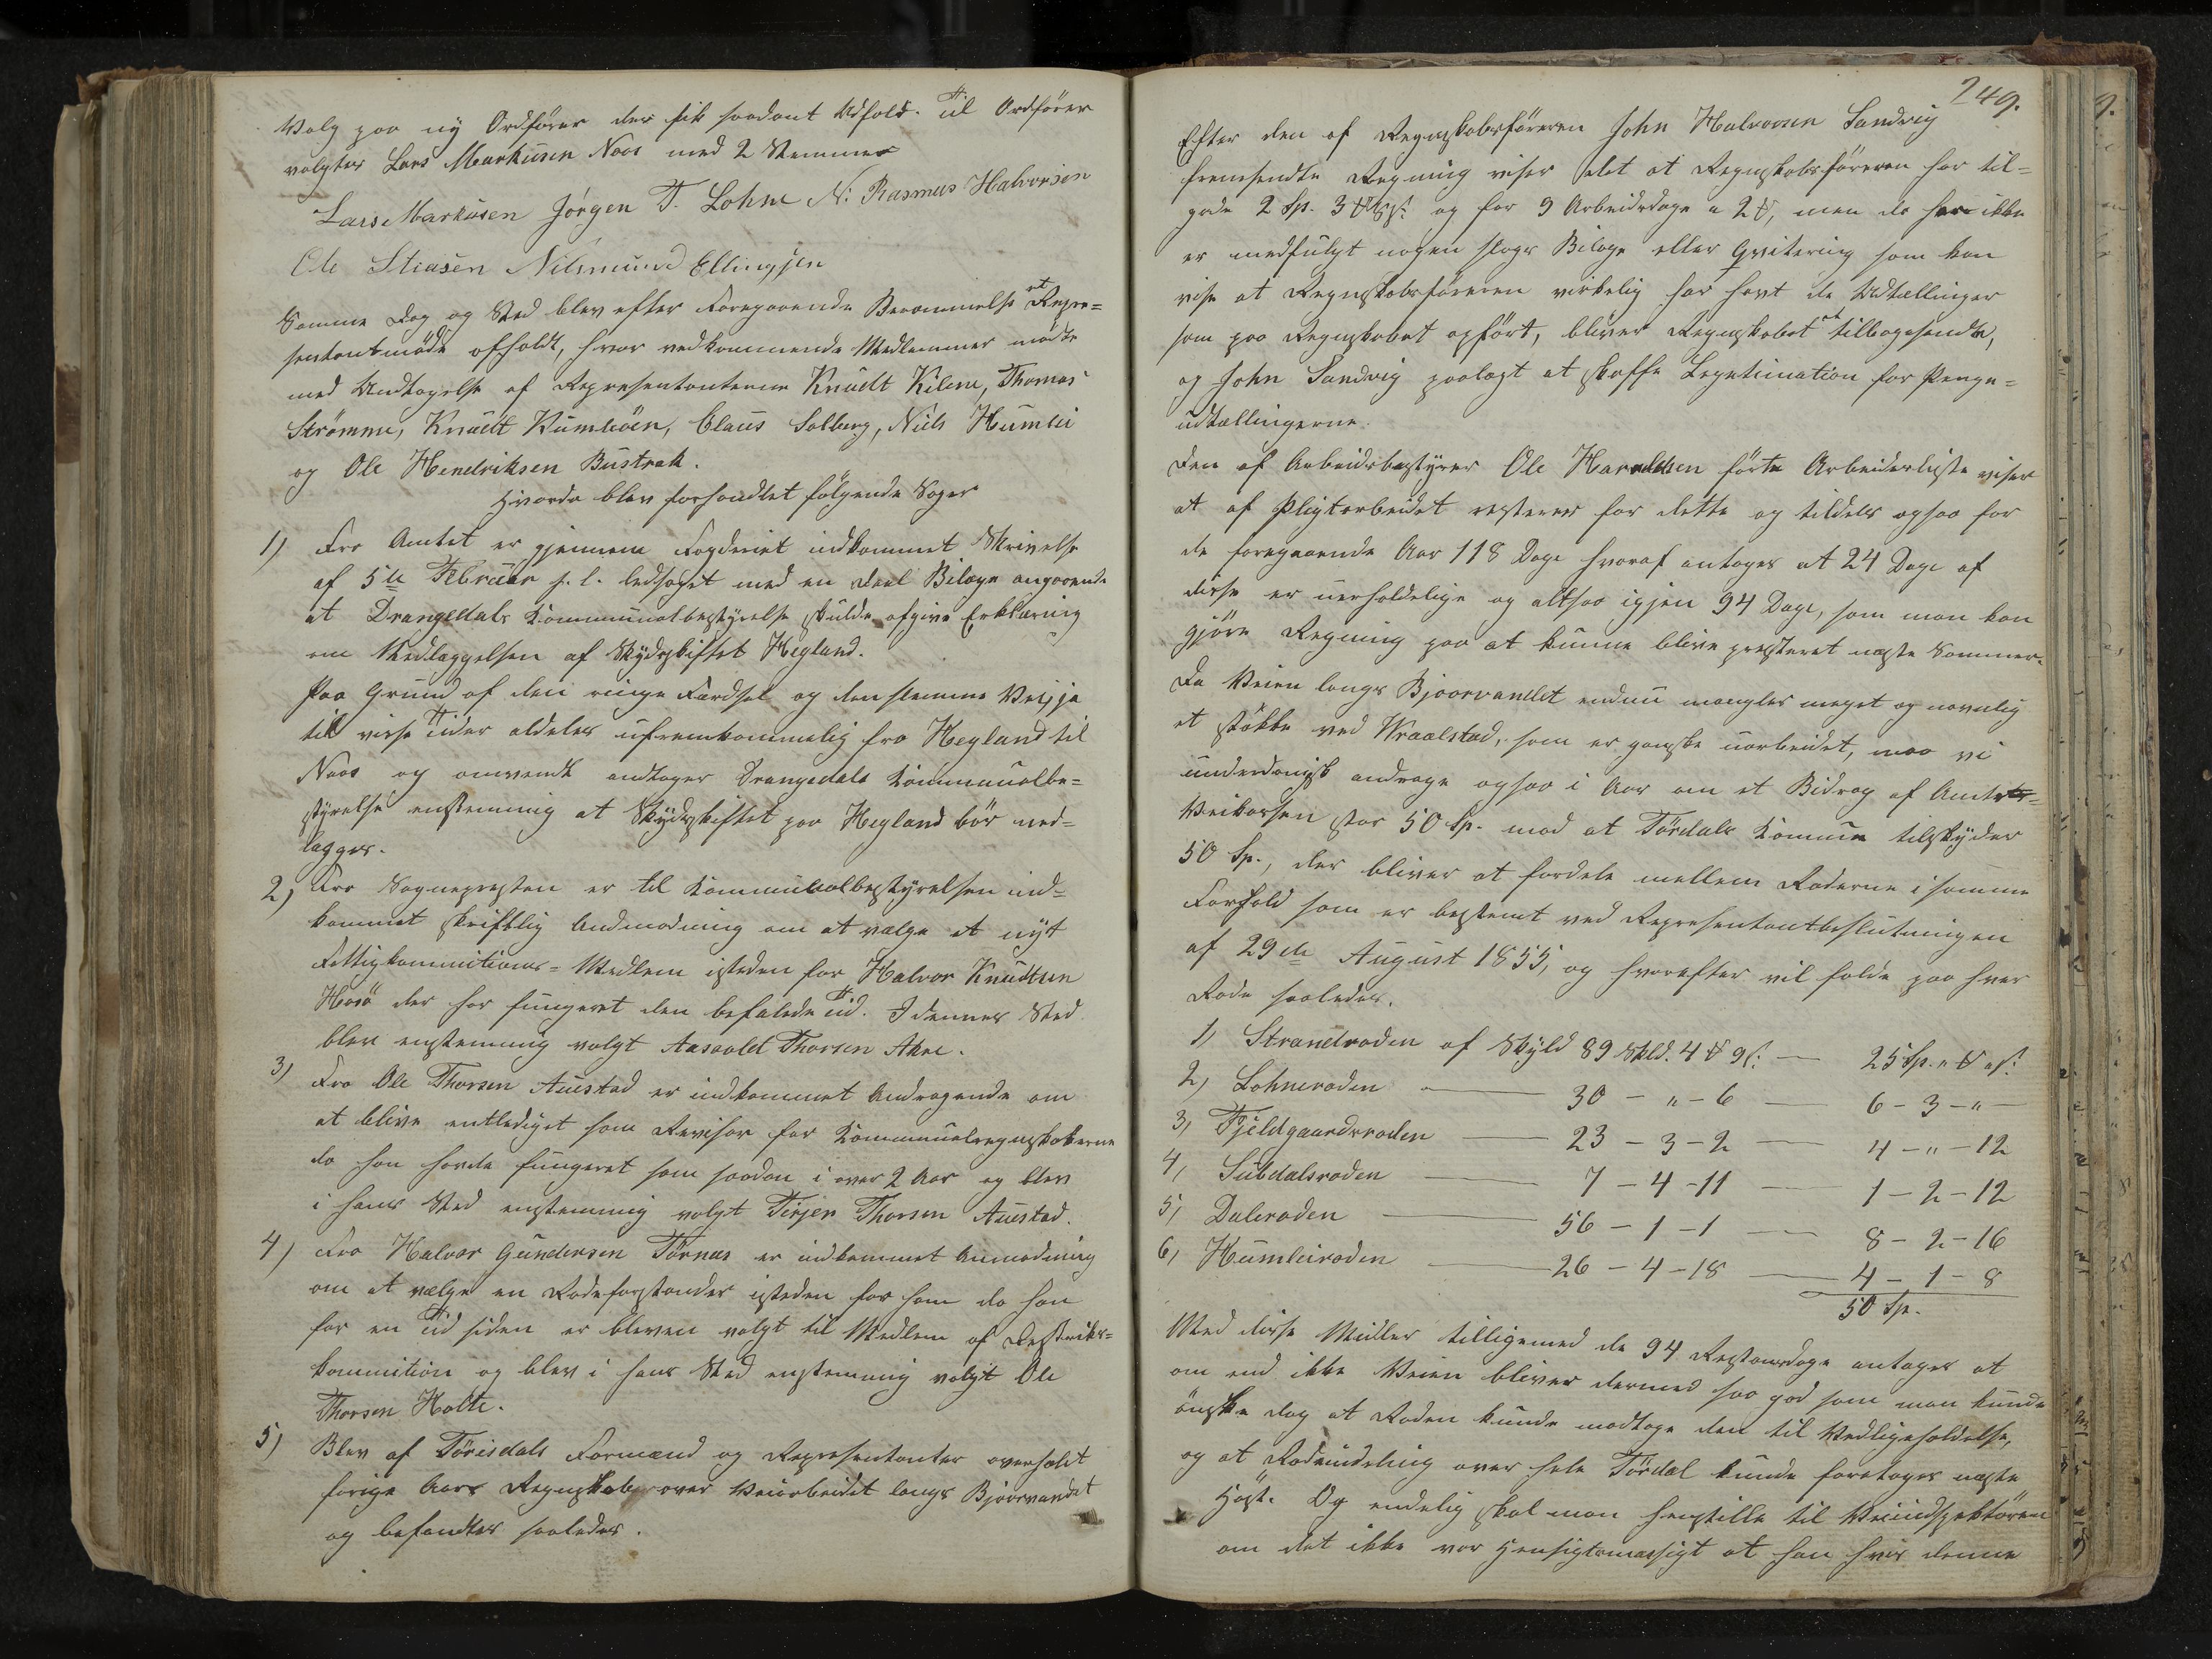 Valg paa ny Ordfører der fik saadant Udfald. Til Ordfører
valgtes Lars Markusen Naas med 2 Stemmer
Lars Markusen Jørgen T. Lohne N: Rasmus Halvorsen
Ole Stiasen Nilsmund Ellingsen
Samme Dag og Sted blev efter Foregaaende Berammelse et Repre=
sentantmøde afholdt, hvor vedkommende Medlemmer mødte
med Undtagelse af Representanterne Knudt Kilene, Thomas
Strømme, Knudt Busmoen, Claus Solberg, Niels Humlei
og Ole Hendriksen Bustrak.
Hvorda blev forhandlet følgende Sager
1) Fra Amtet er gjennem Fogderiet indkommet Skrivelse
af 5te Februar s. l. ledsaget med en Deel Bilage angaaende
at Drangedals Kommunalbestyrelse skulde afgive Erklæring
om Nedlæggelsen af Skydsskiftet Hegland.
Paa Grund af den ringe Færdsel og den slemme Vei, ja
til visse Tider aldeles ufremkommelig fra Hegland til
Naas og omvendt andtager Drangedals Kommunalbe=
styrelse enstemmig at Skydsskiftet paa Hegland bør ned=
lægges.
2) Fra Sognepresten er til Kommunalbestyrelsen ind=
kommet skriftlig Andmodning om at vælge et nyt
Fattigkommitions=Medlem isteden for Halvor Knudtsen
Hosø der har fungeret den befalede Tid. I dennes Sted
blev enstemmig valgt Aasoldt Thorsen Akre.
3) Fra Ole Thorsen Austad er indkommet Andragende om
at blive entlediget som Revisor for Kommunalregnskaberne
da han havde fungeret som saadan i over 2 Aar og blev
i hans Sted enstemmig valgt Terjer Thorsen Austad.
4) Fra Halvor Gundersen Tørnes er indkommet Anmodning
om at vælge en Rodeforstander isteden for ham da han
for en Tid siden er bleven valgt til Medlem af Distrikts=
kommition og blev i hans Sted enstemmig valgt Ole
Thorsen Holte.
5) Blev af Tørisdals Formænd og Representanter overholdt
forige Aars Regnskab over Veiarbeidet langs Bjaarvandet
og befandtes saaledes.
249.
Efter den af Regnskabsføreren John Halvorsen Sandvig
fremsendte Regning viser det at Regnskabsføreren har til=
gode 2 Sp. 3 og for 9 Arbeidsdage a 2, men da her ikke
er medfulgt nogen slags Bilage eller Qvitering som kan
vise at Regnskabsføreren virkelig har havt de Udtællinger
som paa Regnskabet opført, bliver Regnskabet at tilbagesende,
og John Sandvig paalagt at skaffe Legetimation for Penge=
udtællingerne.
Den af Arbeidsbestyrer Ole Haraldsen førte Arbeidsliste viser
at af Pligtarbeidet resterer for dette og tildels ogsaa for
de foregaaende Aar 118 Dage hvoraf antages at 24 Dage af
disse er uerholdelige og altsaa igjen 94 Dage, som man kan
gjøre Regning paa at kunne blive presteret næste Sommer.
Da Veien langs Bjaarvandet endnu mangler meget og navnlig
et støkke ved Kraalstad, som er ganske uarbeidet, maa vi
underdanigst andrage ogsaa i Aar om et Bidrag af Amts=
Veikassen stor 50 Sp. mod at Tørdals Komune tilskyder
50 Sp., der bliver at fordele mellem Roderne i samme
Forhold som er bestemt ved Representantbeslutningen
af 29de August 1855, og hvorefter vil falde paa hver
Rode saaledes.
1) Strandroden af Skyld 89 Skld. 4 9 s: — 25 Sp. "
2) Lohneroden — 30 - " - 6 — 6 - 3 - " —
3) Fjeldgaardsroden — 23 - 3 - 2 — 4 - " - 12
4) Subdalsroden — 7 - 4 - 11 — 1 - 2 - 12
5) Daleroden — 56 - 1 - 1 — 8 - 2 - 16
6) Humleiroden — 26 - 4 - 18 — 4 - 1 - 8
50 Sp.
Med disse Midler tilligemed de 94 Restansdage antages at
om end ikke Veien bliver dermed saa god som man kunde
ønske dog at Roden kunde modtage den til Vedligeholdelse,
og at Rodeindeling over hele Tørdal kunde foretages næste
Høst. Og endelig skal man henstille til Veiindspektøren
om det ikke var Hensigtsmæssigt at han hvis denne